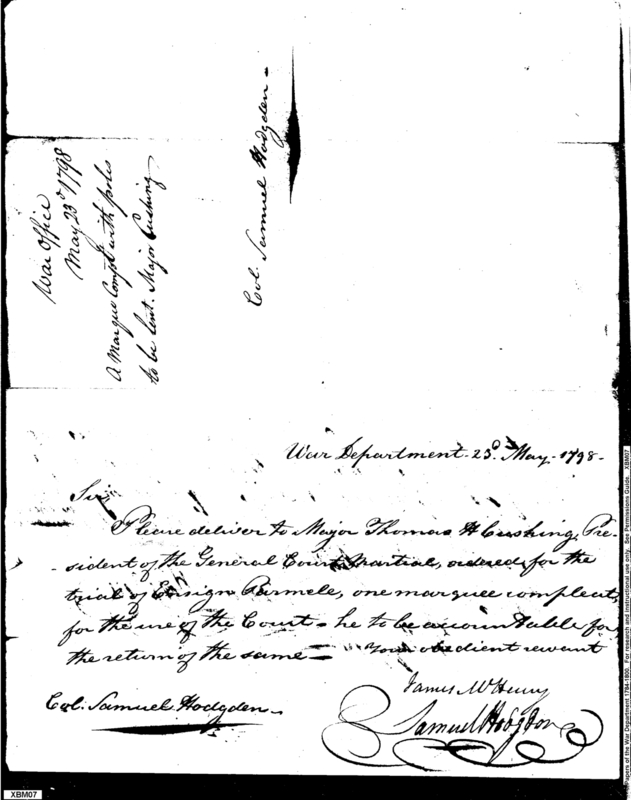 War Office
May 23d 1798
A Marque Compt with poles
to be lent. Major Cushing
Col. Samuel Hodgden-
War Department. 23d May. 1798-
Sir,
Please deliver to Major Thomas H Cushing, Pre-
sident of the General Court Martial, ordered for the
trial of Ensign Parmele, one marquee compleat,
for the use of the Court - he to be accountable for
the return of the same - Your obedient servant
James McHenry
Col. Samuel Hodgden-
Samuel Hodgdon
XBM07
Papers of the War Department 1784-1800. For research and instructional use only. See Permissions Guide. XBM07